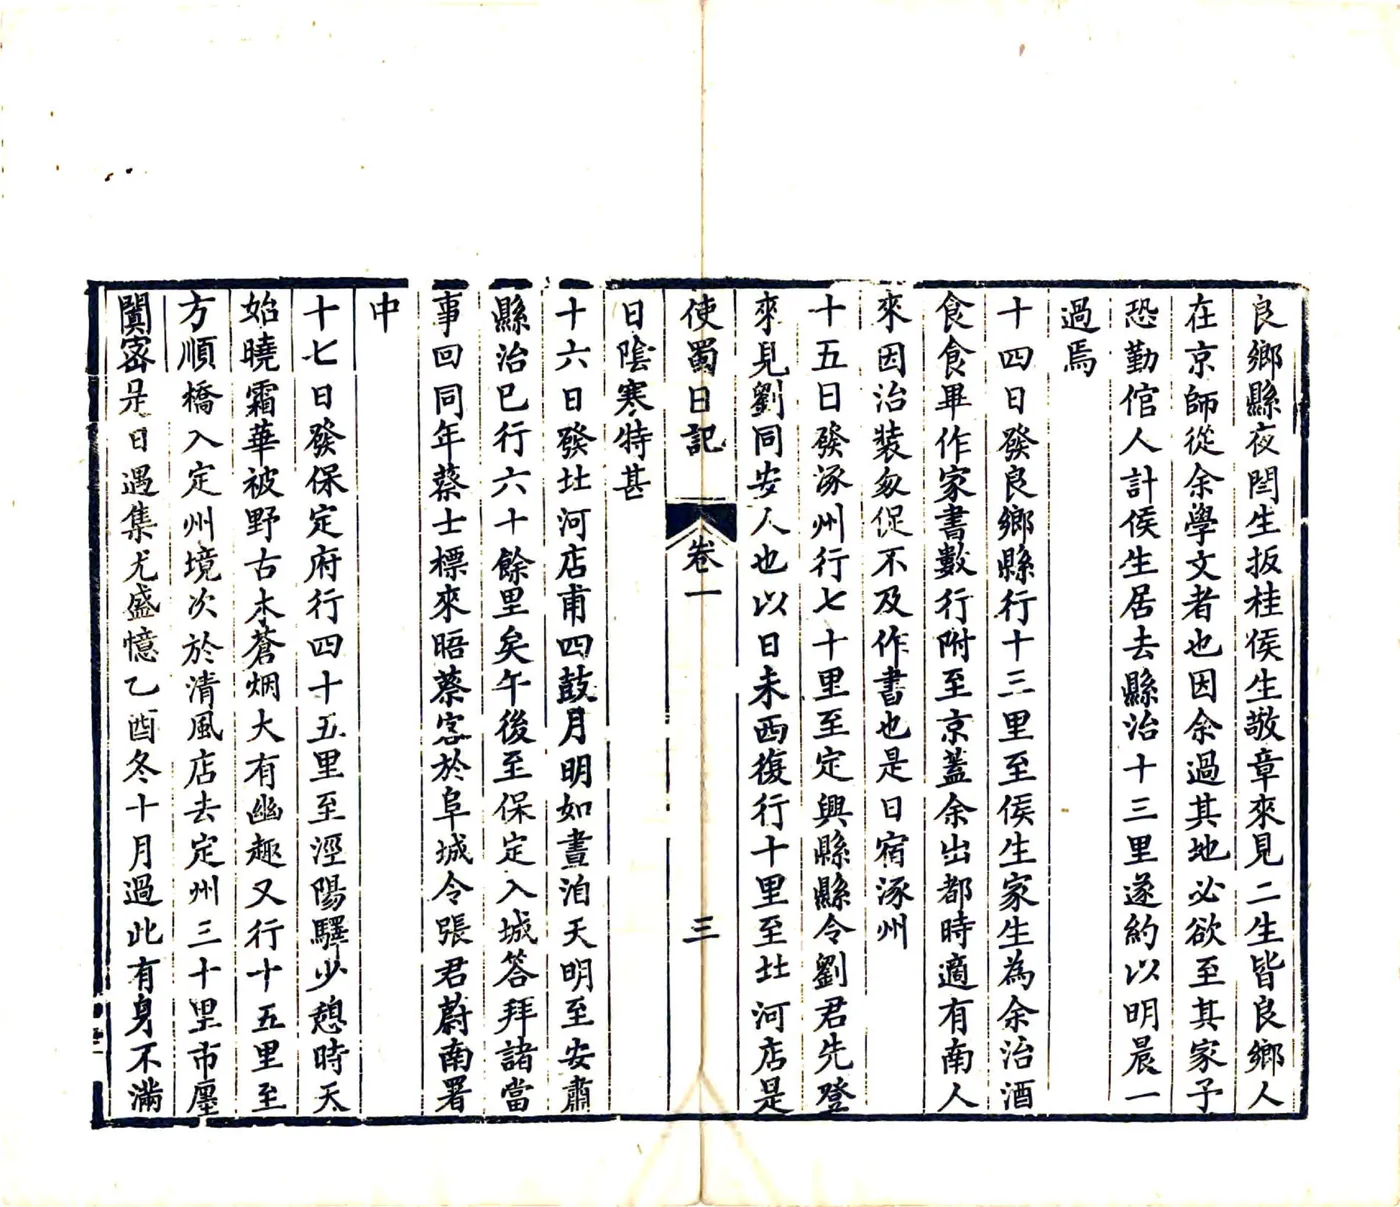 良鄉縣夜閆生扳桂侯生敬章來見二生皆良鄉人
在京師從余學文者也因余過其地必欲至其家予
恐勤倌人計侯生居去縣治十三里遂約以明晨一
過焉
十四日發良鄉縣行十三里至侯生家生為余治酒
食食畢作家書數行附至京蓋余出都時適有南人
來因治裝匆促不及作書也是日宿涿州
十五日發涿州行七十里至定興縣縣令劉君先登
來見劉同安人也以日未西復行十里至北河店是
使蜀日記 卷一 三
日陰寒特甚
十六日發北河店甫四鼓月明如晝洎天明至安肅
縣治已行六十餘里矣午後至保定入城答拜諸當
事回同年蔡士標來晤蔡客於阜城令張君蔚南署
中
十七日發保定府行四十五里至涇陽驛少憩時天
始曉霜華被野古木蒼烟大有幽趣又行十五里至
方順橋入定州境次於清風店去定州三十里市廛
闐密是日遇集尤盛憶乙酉冬十月過此有身不滿